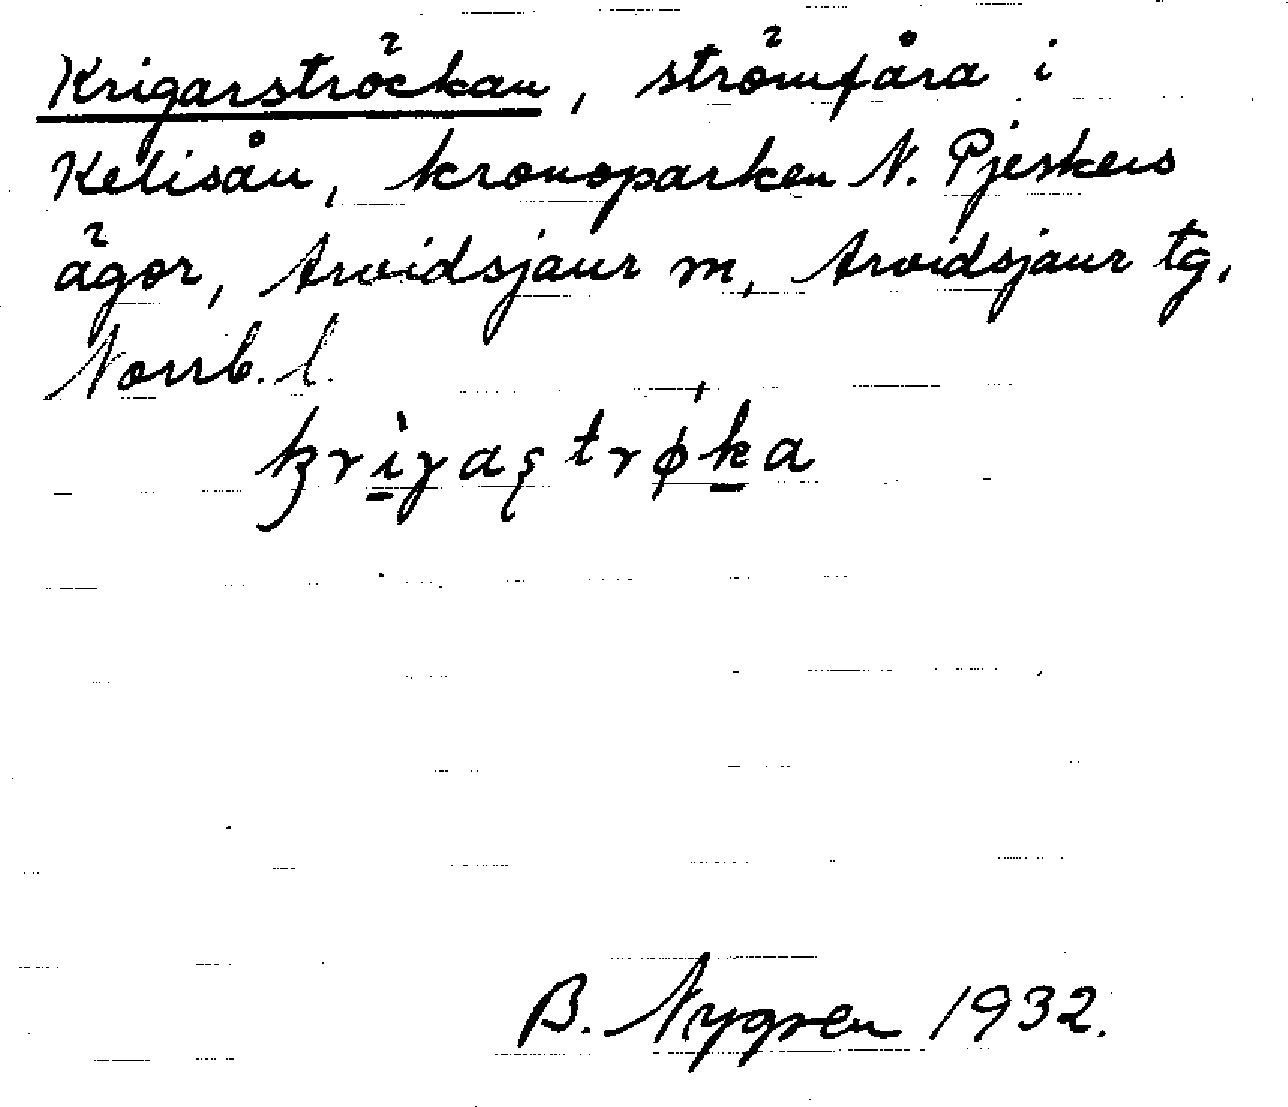 Krigarströckan, strömfåra i
Kelisån, kronoparken N. Pjeskers
ägor, Arvidsjaur m, Arvidsjaur tg,
Norrb. l.
B. Nygren 1932.